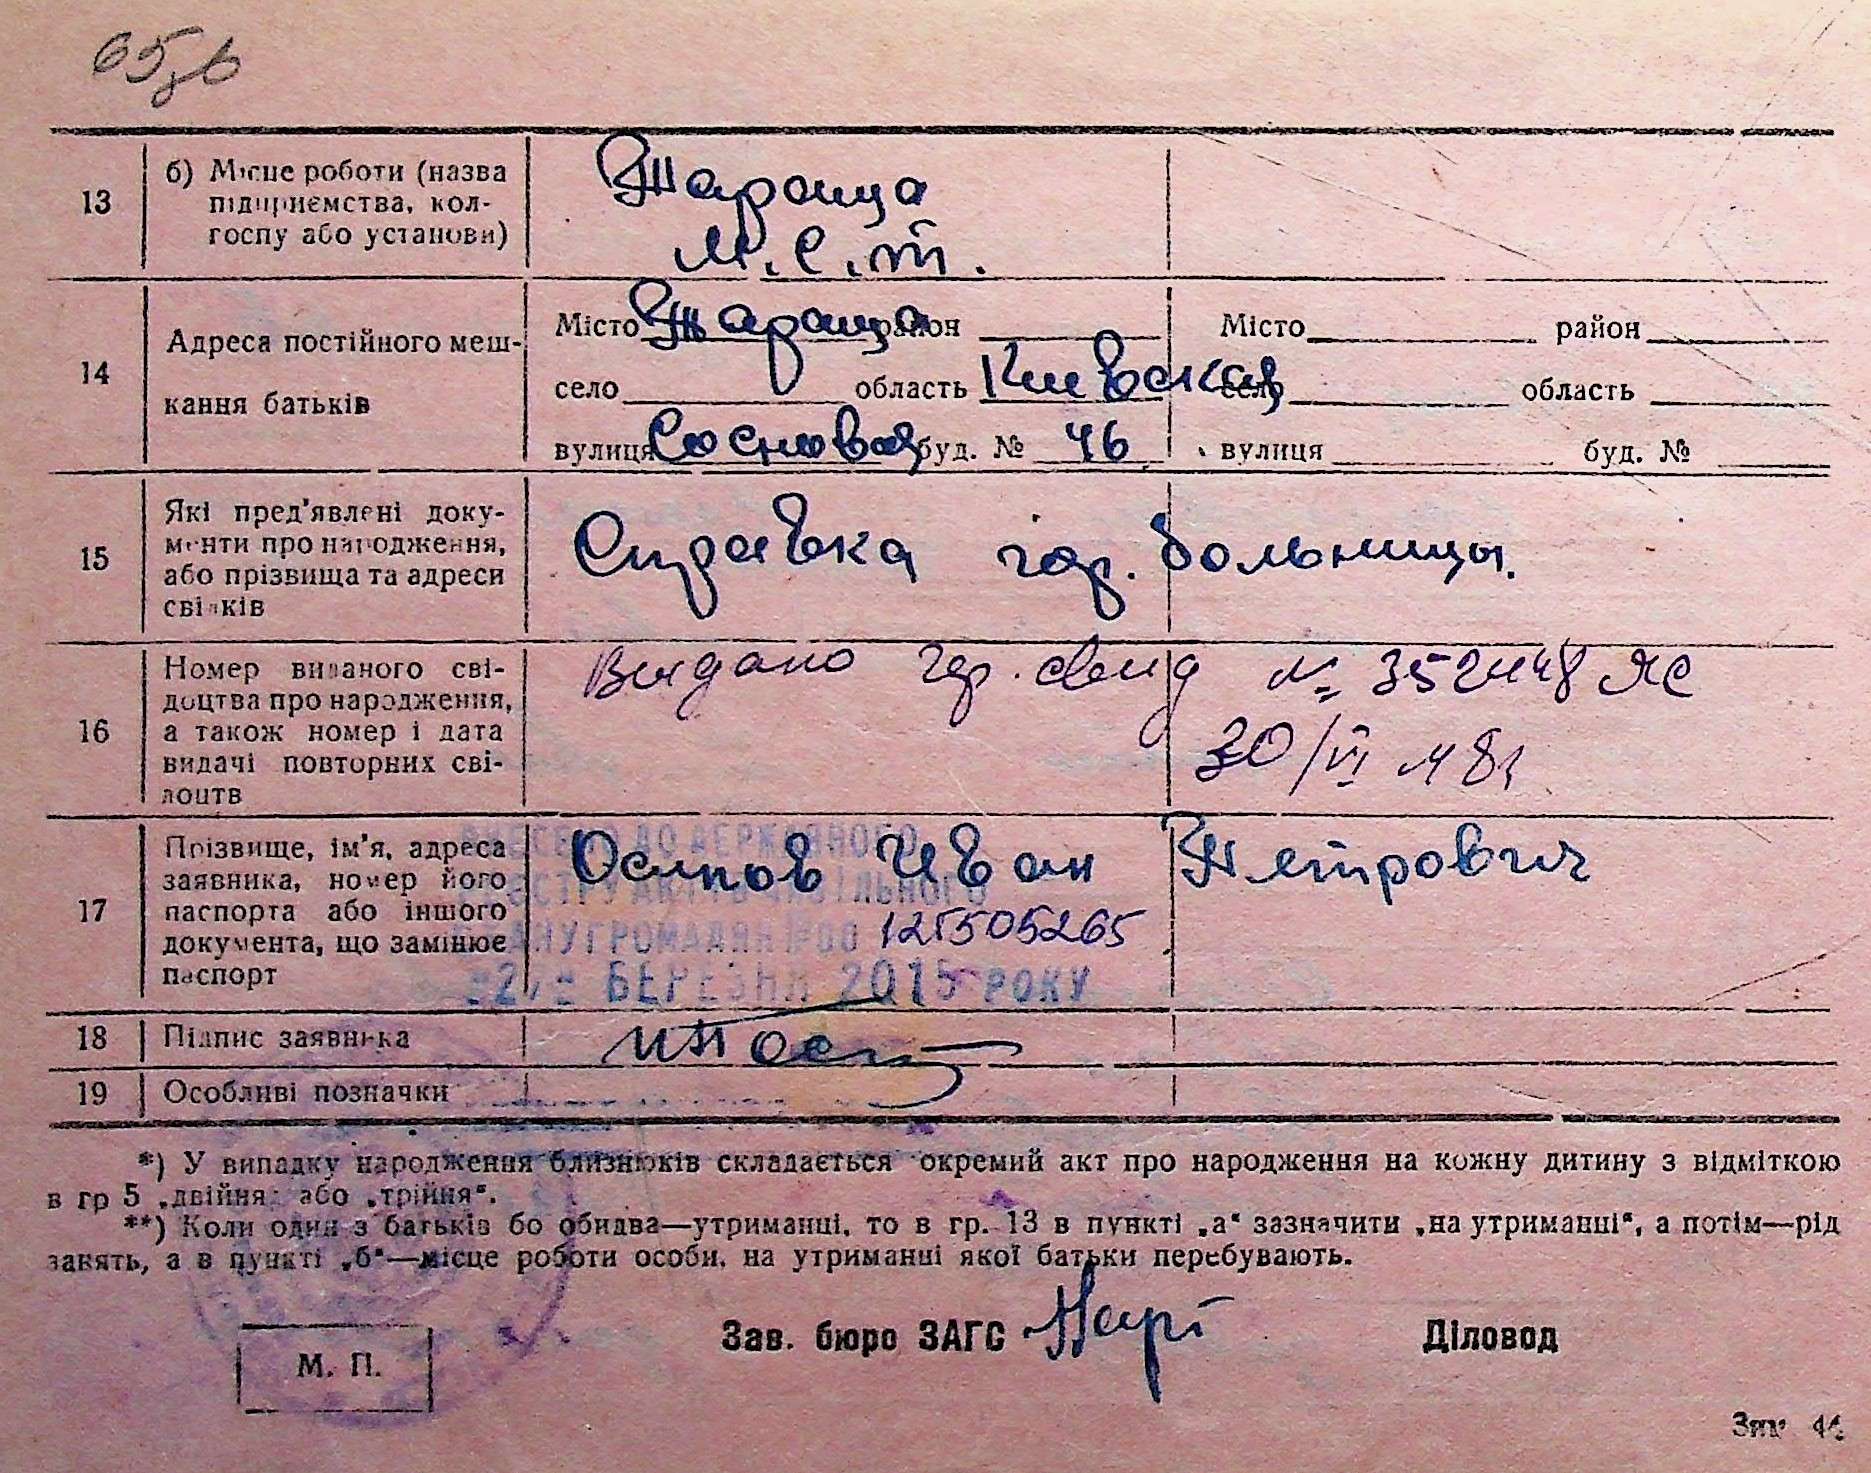 65
13
б) Місце роботи (назва
підприємства, кол-
госпу або установи)
Тараща
М.С.Т.
14
Адреса постійного меш-
кання батьків
Місто Тараща район
село область Киевская
вулиця Сосновая буд. № 46
Місто район
село область
вулиця буд. №
15
Які пред'явлені доку-
менти про народження,
або прізвища та адреси
свідків
Справка гор. больницы.
16
Номер виданого сві-
доцтва про народження,
а також номер і дата
видачі повторних сві-
доцтв
Выдано гор. свид №
30/VI
17
Прізвище, ім'я, адреса
заявника, номер його
паспорта або іншого
документа, що замінює
паспорт
Осипов Иван Петрович
125505265
БЕРЕЗНЯ 2015 РОКУ
18
Підпис заявника
19
Особливі позначки
*) У випадку народження близнюків складається окремий акт про народження на кожну дитину з відміткою
в гр 5 „двійня" або „трійня".
**) Коли один з батьків бо обидва—утриманці, то в гр. 13 в пункті „а" зазначити „на утриманні", а потім—рід
занять, а в пункті „б"—місце роботи особи, на утриманні якої батьки перебувають.
Зав. бюро ЗАГС
Діловод
М. П.